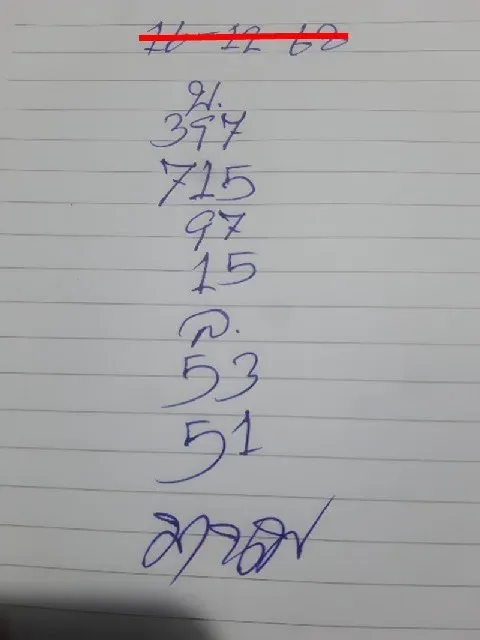 16-12-68
บ.
397
715
97
15
ล.
53
51